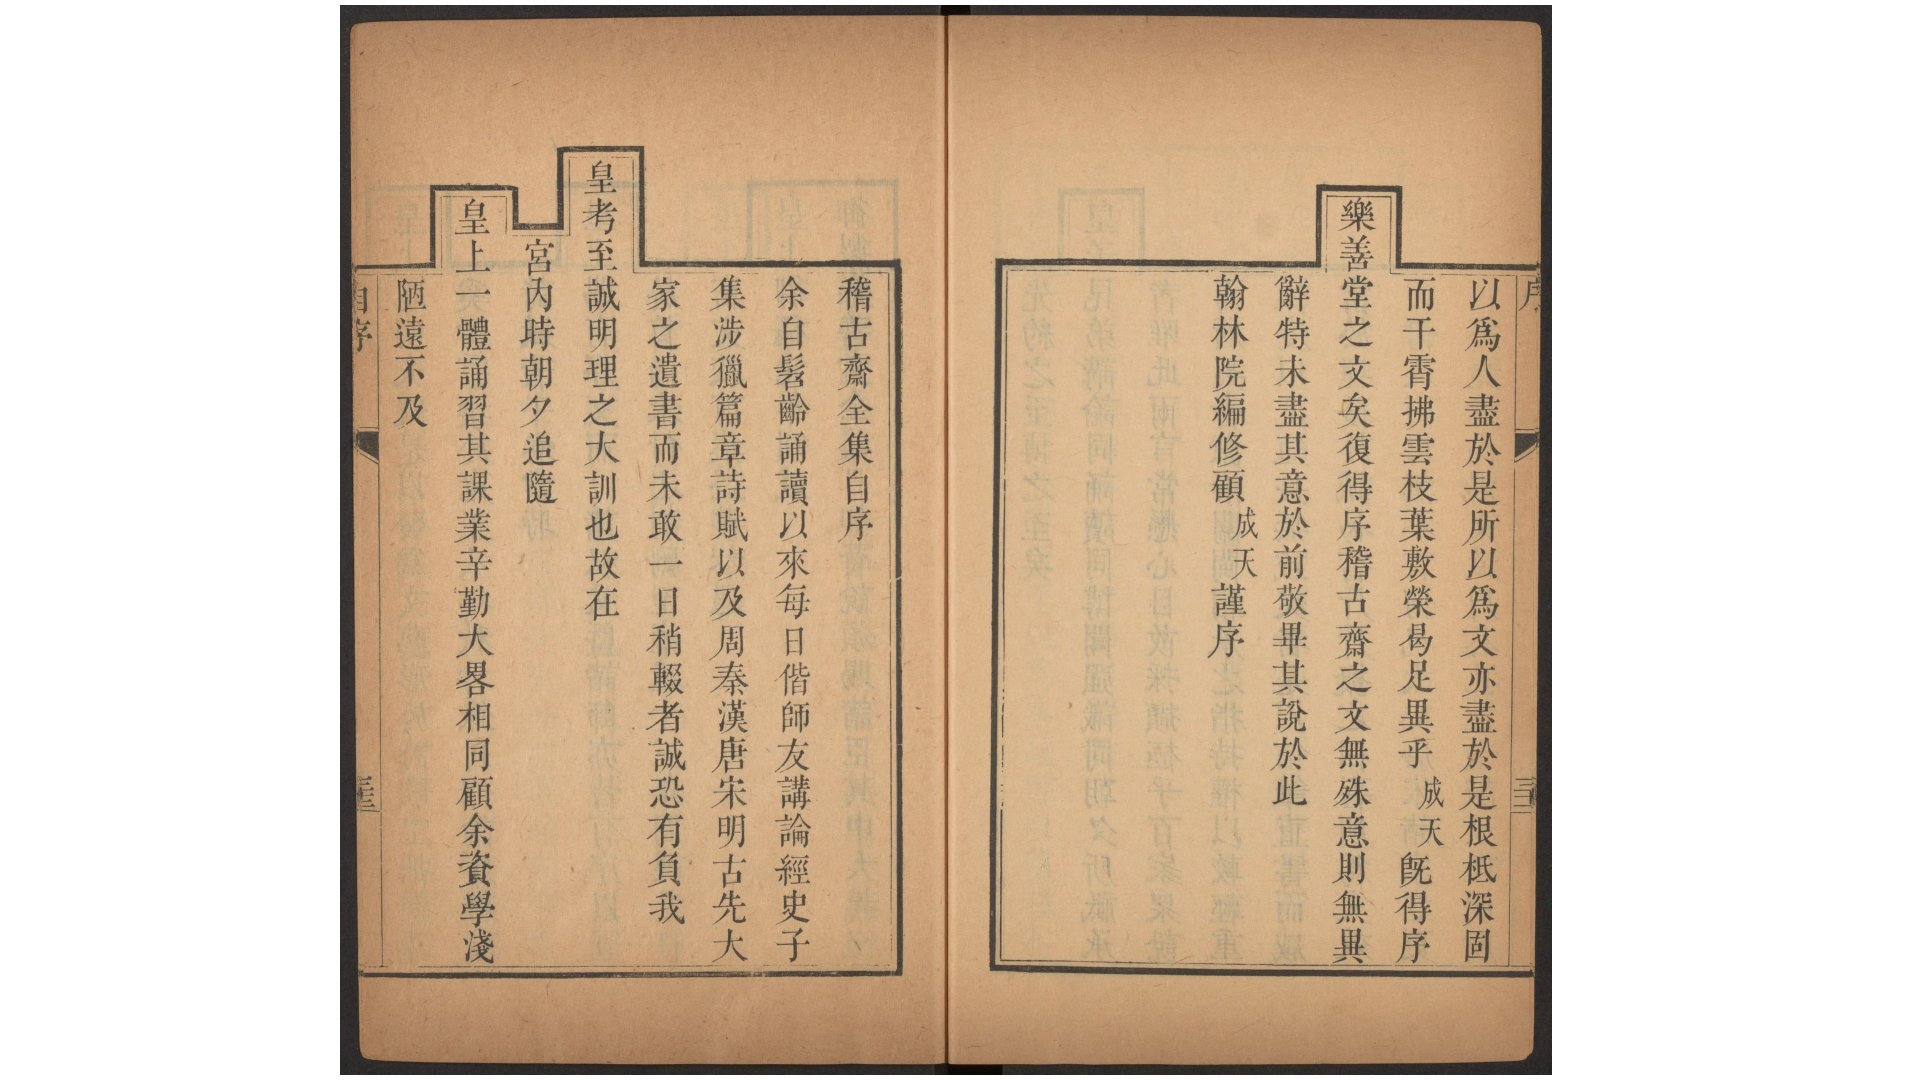 序
以爲人盡於是所以爲文亦盡於是根柢深固
而干霄拂雲枝葉敷榮曷足異乎成天旣得序
樂善堂之文矣復得序稽古齋之文無殊意則無異
辭特未盡其意於前敬畢其說於此
翰林院編修顧成天謹序
稽古齋全集自序
余自髫齡誦讀以來每日偕師友講論經史子
集涉獵篇章詩賦以及周秦漢唐宋明古先大
家之遺書而未敢一日稍輟者誠恐有負我
皇考至誠明理之大訓也故在
宮內時朝夕追隨
皇上一體誦習其課業辛勤大畧相同顧余資學淺
陋遠不及
自序